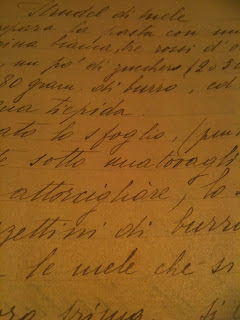 Strudel di mele
para la pasta con un
rina bianca, tre rossi d'o
, un po' di zucchero (20 30
80 gram. di burro, col
qua tiepida.
ato lo sfoglio, (pun
e sotto una tovagli
attorcigliare, lo s
zzettini di burro
le mele che si
ora prima